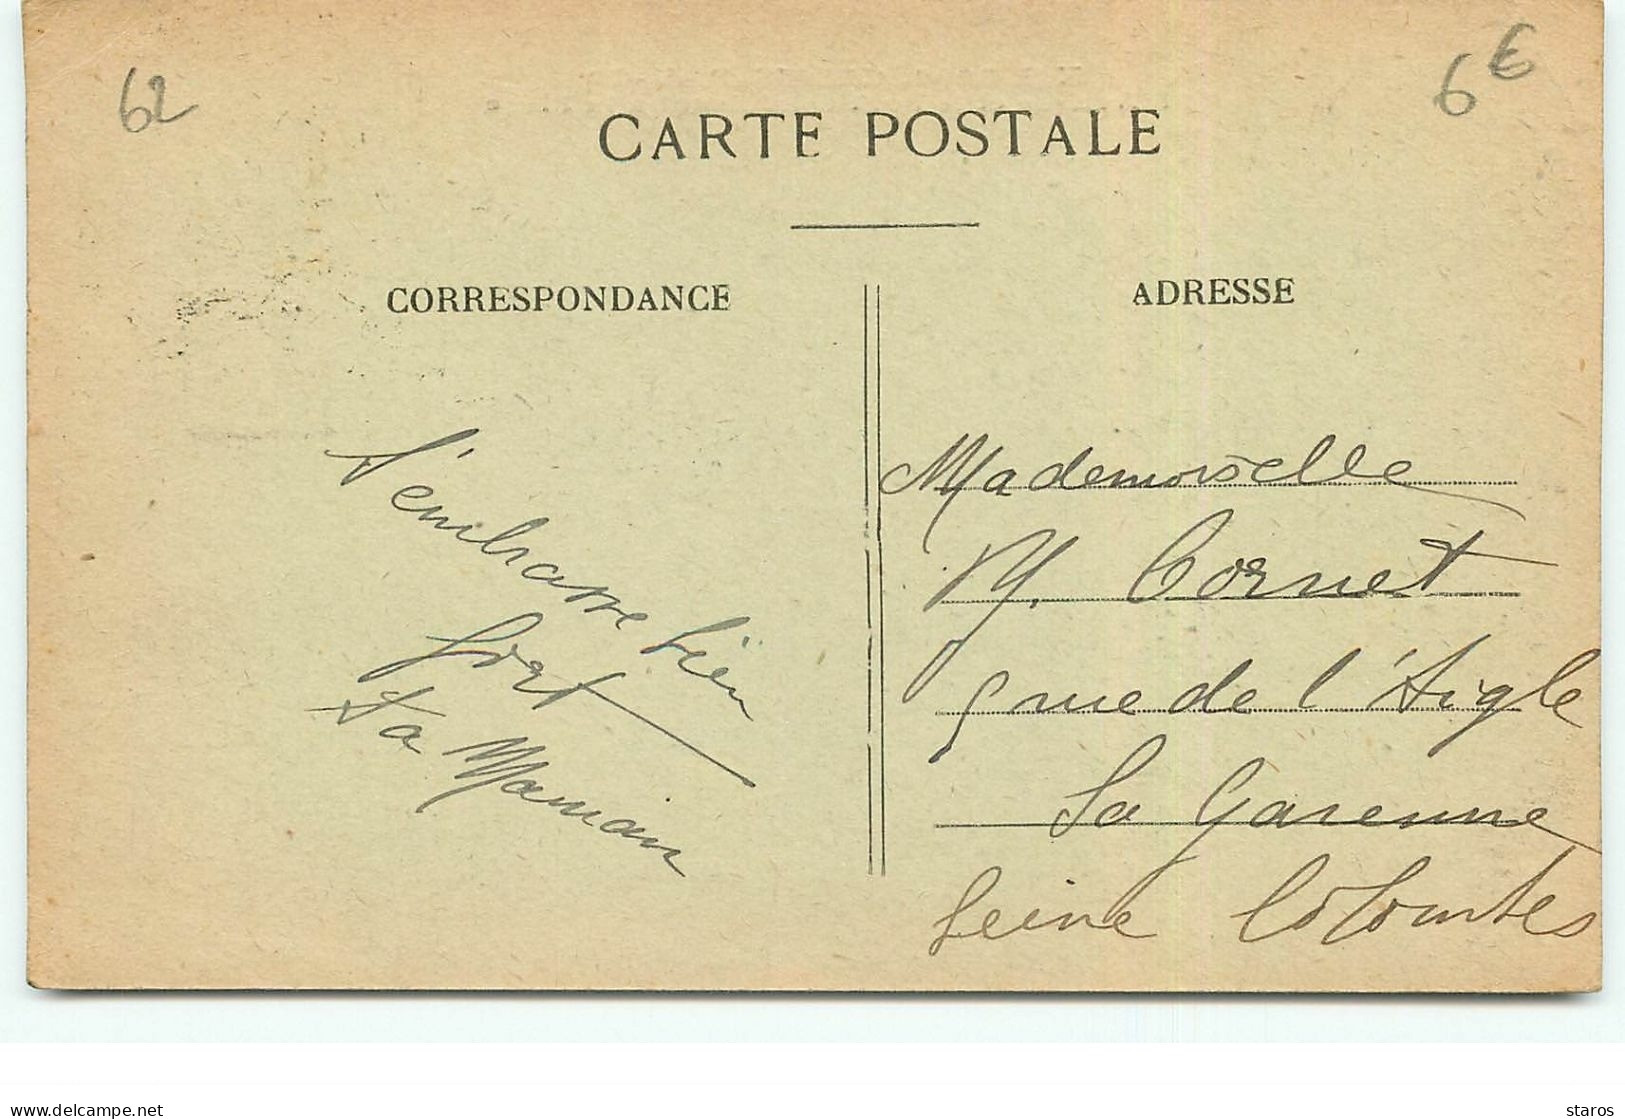 62
6€
CARTE POSTALE
CORRESPONDANCE
ADRESSE
t'embrasse bien
fort
Ta Maman
Mademoiselle
M. Cornet
5 rue de l'Aigle
La Garenne
Seine Colombes
www.delcampe.net
staros